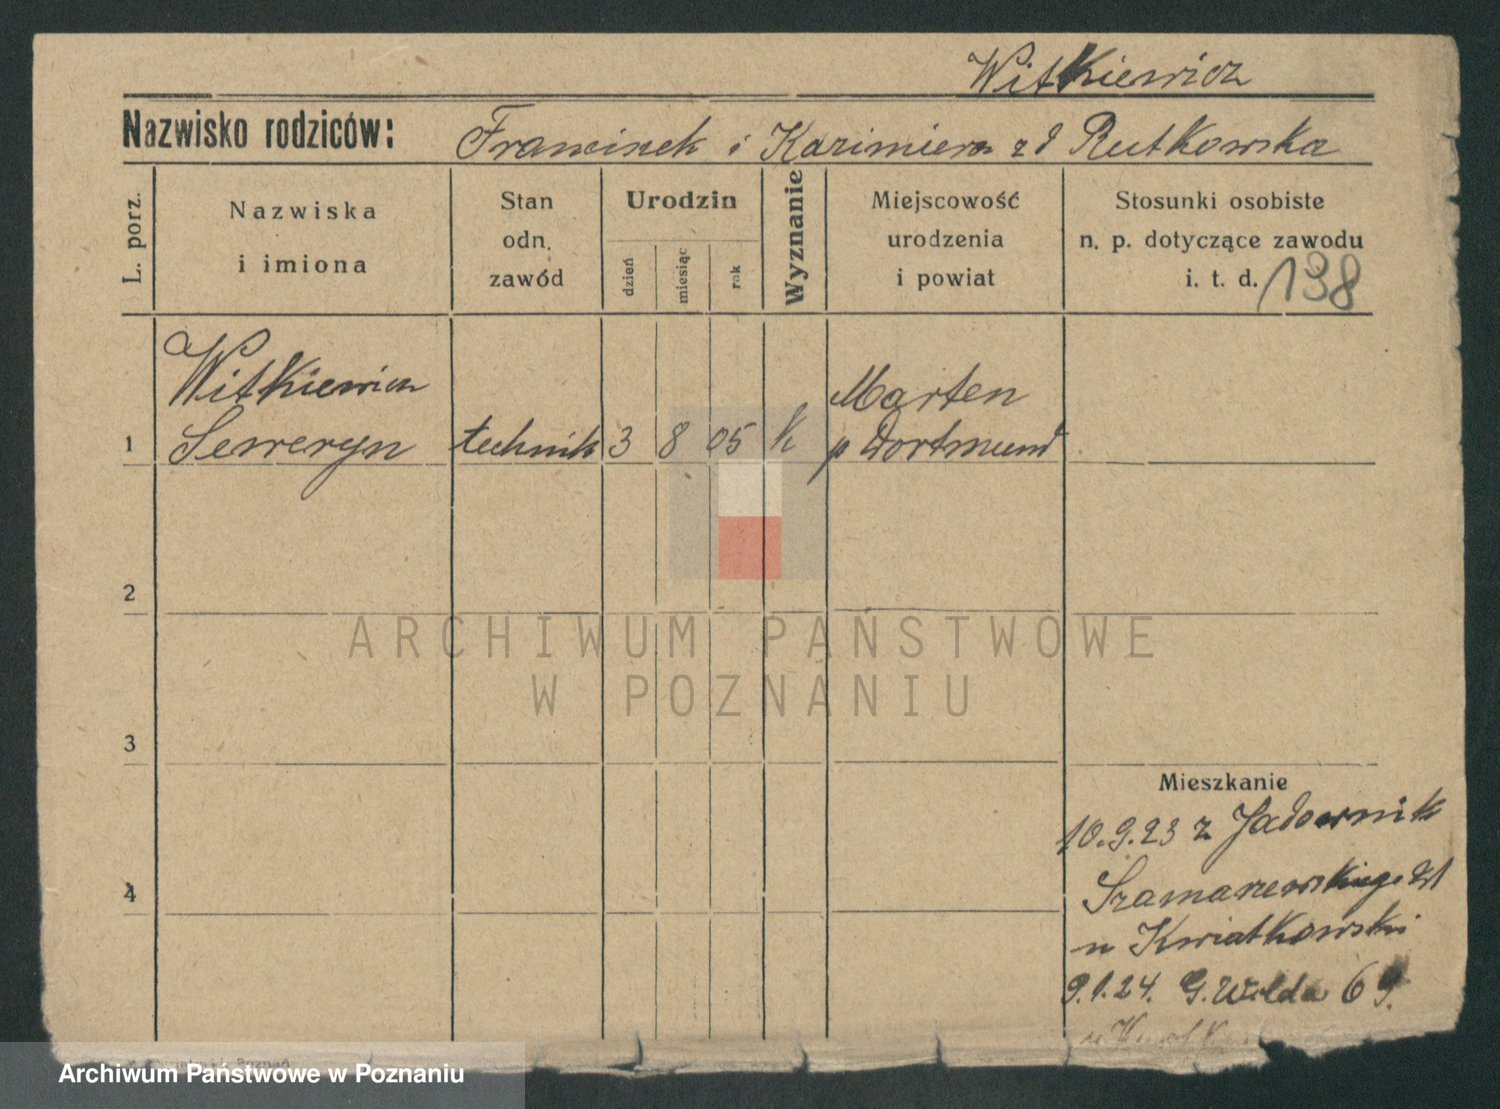 Witkiewicz
Nazwisko rodziców: Franciszek i Kazimiera zd Rutkowska
L. porz.
Nazwiska
i imiona
Stan
odn.
zawód
Urodzin
dzień
miesiąc
rok
Wyznanie
Miejscowość
urodzenia
i powiat
Stosunki osobiste
n. p. dotyczące zawodu
i. t. d. 138
Witkiewicz
1 Seweryn technik 3 8 05 k
Marten
p Dortmund
2
3
4
Mieszkanie
10.9.23 z Jadownik
Szamarzewskiego
u Kwiatkowski
9.1.24. G. Wilda 69.
u
ARCHIWUM PAŃSTWOWE
W POZNANIU
Archiwum Państwowe w Poznaniu